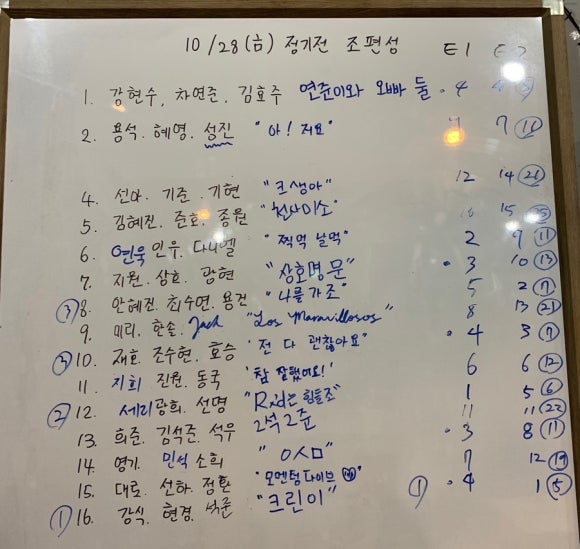 10/28(금) 정기전 조편성 E1 E2
1. 강현수, 차연준, 김효주 연준이와 오빠 둘 · 4
2. 용석. 혜영. 성진 "아! 지요" 7 11
4. 선아. 기준. 기현 "크생아" 12 14 21
5. 김혜진. 준호. 종원 "천사미소" 15
6. 연욱 인우. 다니엘 "찍먹 날먹" 2 9 11
7. 지원. 상효. 광현 "상호명 문" · 3 10 13
③ 8. 안혜진. 최수연. 용건 "나를가조" 5 2 7
9. 미리. 한솔. Jack "Los Maravillosos" 8 13 21
③ 10. 재효. 조수현. 효승 "전 다 괜찮아요" · 4 3 7
11. 지희 진원. 동국 "참 잘했어요!" 6 6 12
② 12. 세리 광희. 선명 "Rxd는 힘들조" 1 5 6
13. 희준. 김석준. 석우 2석2준 11 11 22
14. 영기. 민석 소희 "ㅇㅅㅁ" · 3 8 11
15. 대로. 선하. 정환 "모멘텀다이브" 7 12 19
① 16. 강식. 현경. 석준 "크린이" ① · 4 1 5